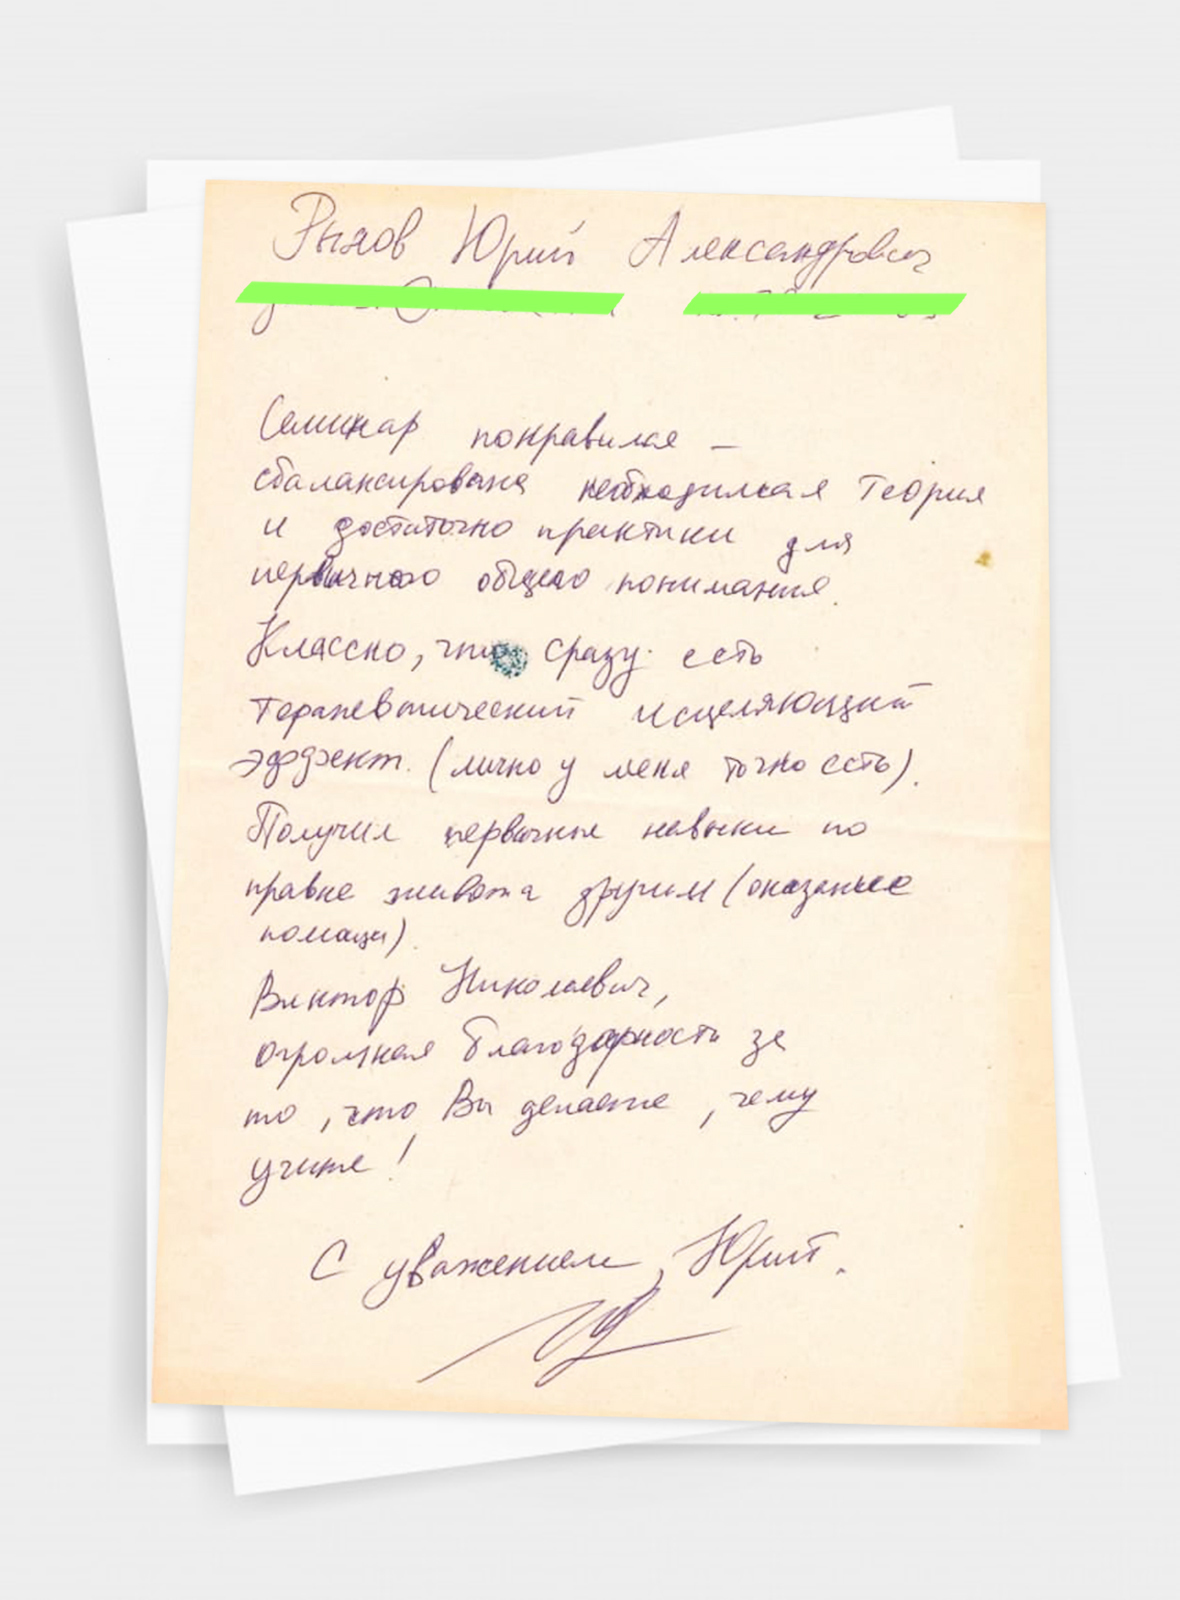 Рыков Юрий Александрович
Семинар понравился –
сбалансирована необходимая теория
и достаточно практики для
первичного общего понимания.
Классно, что сразу есть
терапевтический исцеляющий
эффект. (лично у меня точно есть).
Получил первичные навыки по
правке живота другим (оказание
помощи).
Виктор Николаевич,
огромная благодарность за
то, что Вы делаете, чему
учите!
С уважением, Юрий.